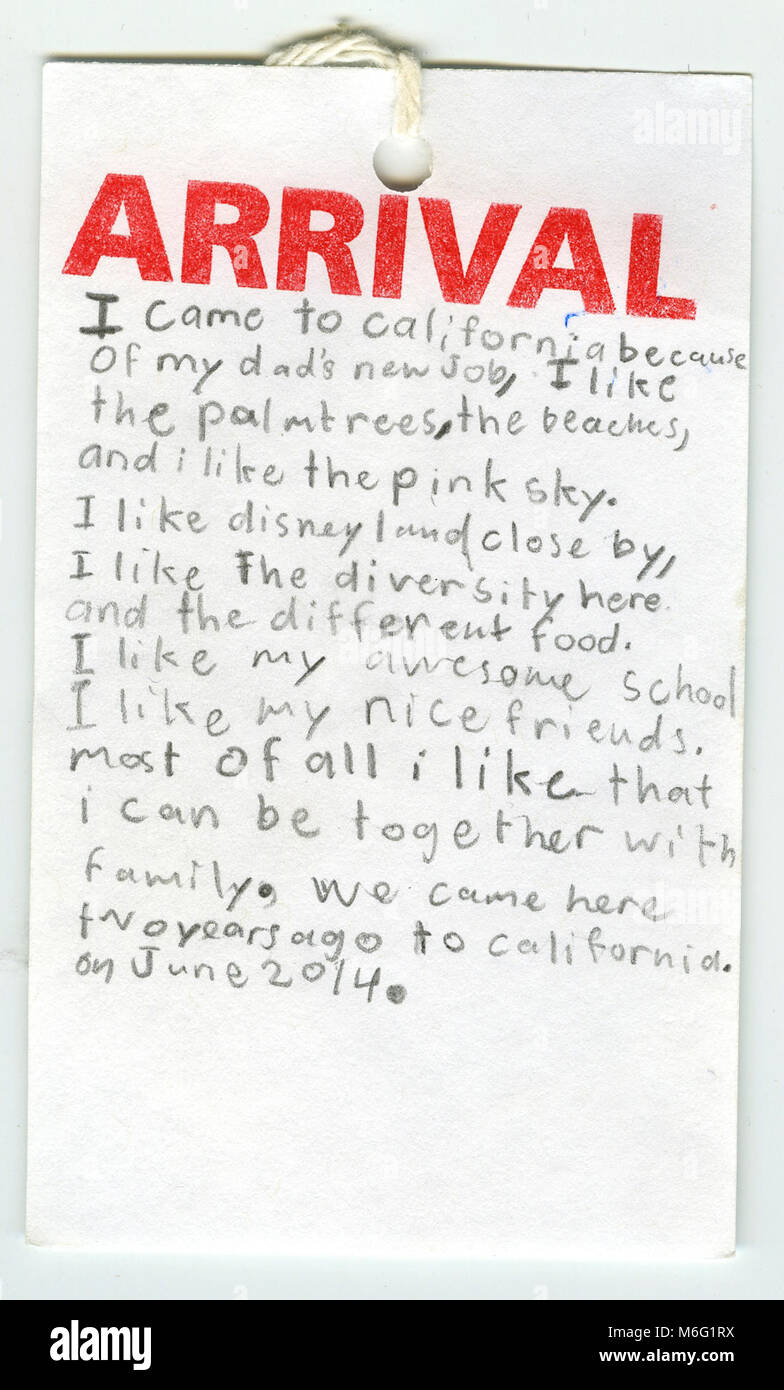 ARRIVAL
I came to california because
of my dad's new Job, I like
the palmtrees, the beaches,
and i like the pink sky.
I like disneyland close by,
I like the diversity here
and the different food.
I like my awesome school
I like my nice friends.
most of all i like that
i can be together with
family. we came here
two years ago to california.
on June 2014.
alamy
Image ID: M6G1RX
www.alamy.com